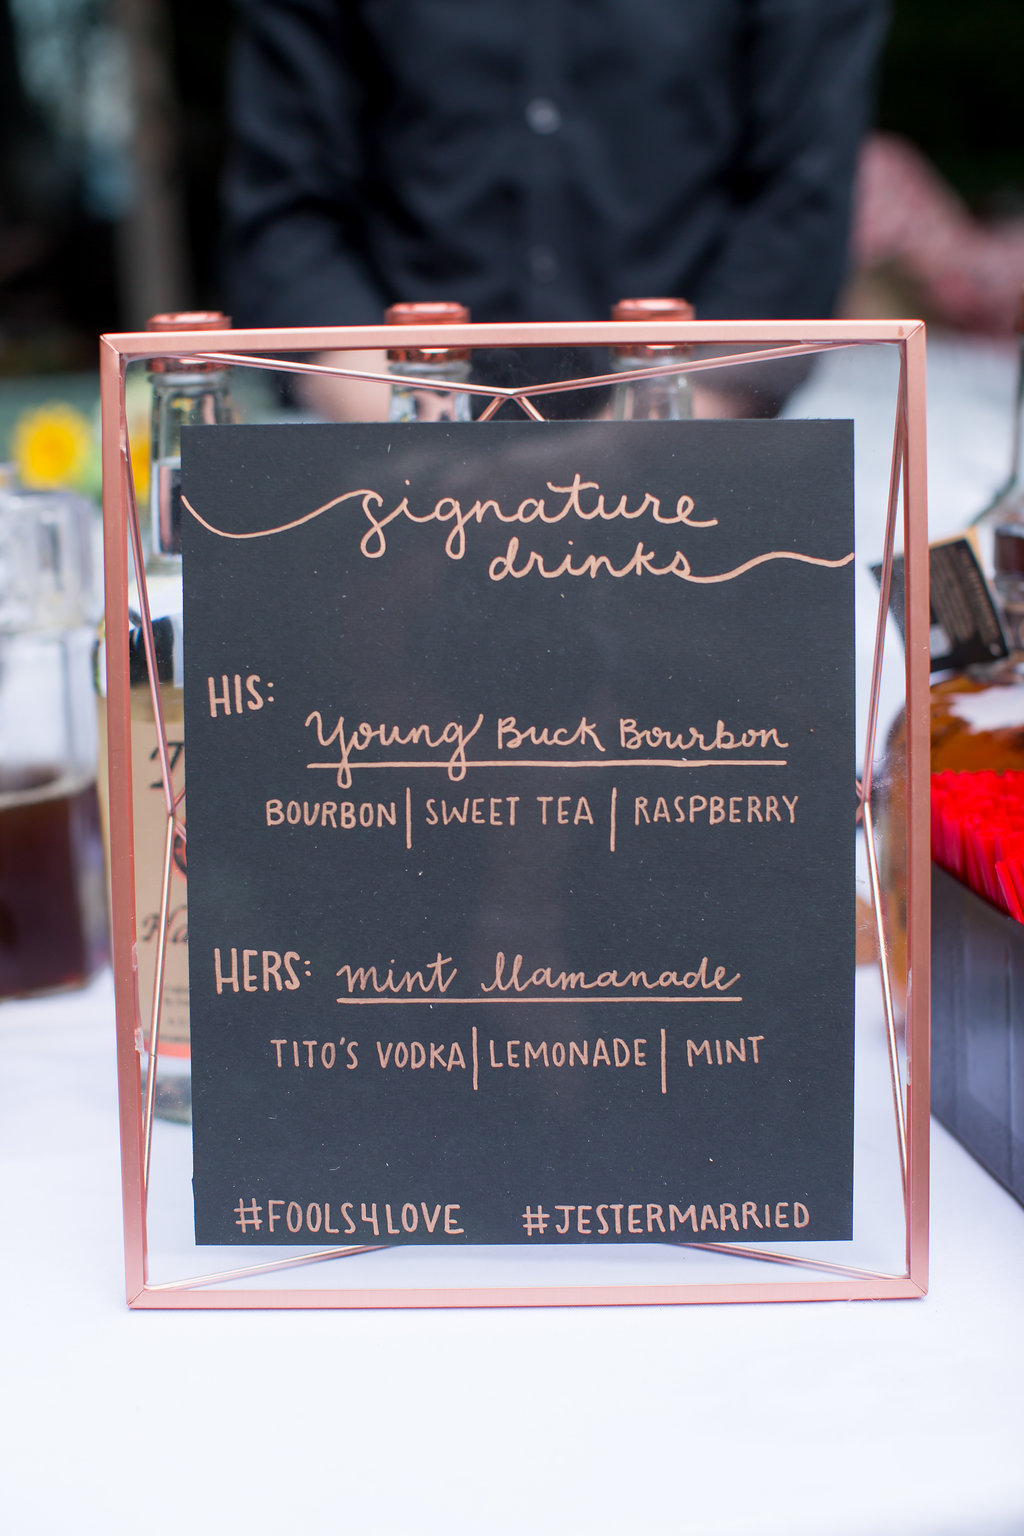 signature
drinks
HIS:
Young Buck Bourbon
BOURBON | SWEET TEA | RASPBERRY
HERS: mint llamanade
TITO'S VODKA | LEMONADE | MINT
#FOOLS4LOVE #JESTERMARRIED